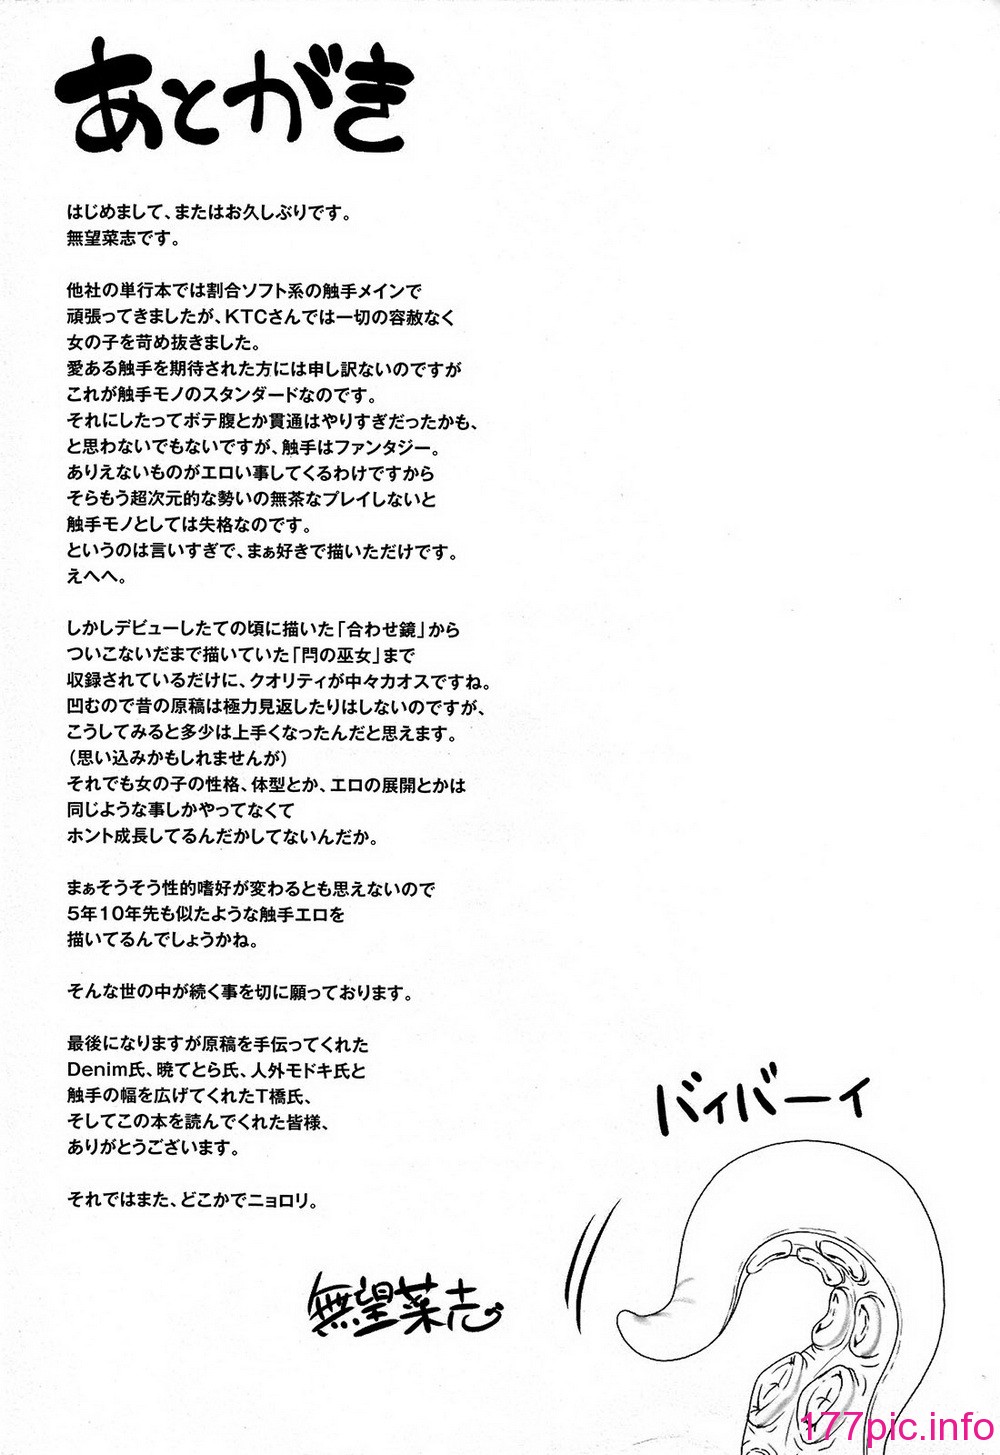 あとがき
はじめまして、またはお久しぶりです。
無望菜志です。
他社の単行本では割合ソフト系の触手メインで
頑張ってきましたが、KTCさんでは一切の容赦なく
女の子を苛め抜きました。
愛ある触手を期待された方には申し訳ないのですが
これが触手モノのスタンダードなのです。
それにしたってボテ腹とか貫通はやりすぎだったかも、
と思わないでもないですが、触手はファンタジー。
ありえないものがエロい事してくるわけですから
そらもう超次元的な勢いの無茶なプレイしないと
触手モノとしては失格なのです。
というのは言いすぎで、まぁ好きで描いただけです。
えへへ。
しかしデビューしたての頃に描いた「合わせ鏡」から
ついこないだまで描いていた「閂の巫女」まで
収録されているだけに、クオリティが中々カオスですね。
凹むので昔の原稿は極力見返したりはしないのですが、
こうしてみると多少は上手くなったんだと思えます。
（思い込みかもしれませんが）
それでも女の子の性格、体型とか、エロの展開とかは
同じような事しかやってなくて
ホント成長してるんだかしてないんだか。
まぁそうそう性的嗜好が変わるとも思えないので
5年10年先も似たような触手エロを
描いてるんでしょうかね。
そんな世の中が続く事を切に願っております。
最後になりますが原稿を手伝ってくれた
Denim氏、暁てとら氏、人外モドキ氏と
触手の幅を広げてくれたT橋氏、
そしてこの本を読んでくれた皆様、
ありがとうございます。
それではまた、どこかでニョロリ。
無望菜志
バイバーイ
177pic.info